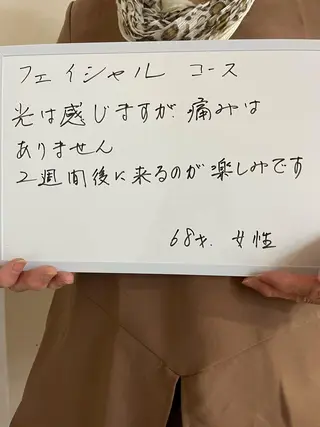 フェイシャル コース
光は感じますが、痛みは
ありません
2週間後に来るのが楽しみです
68才. 女性